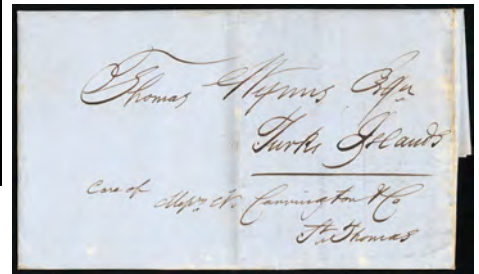 Thomas Wynns Esqr
Turks Islands
Care of Messrs N. Carrington & Co
St. Thomas